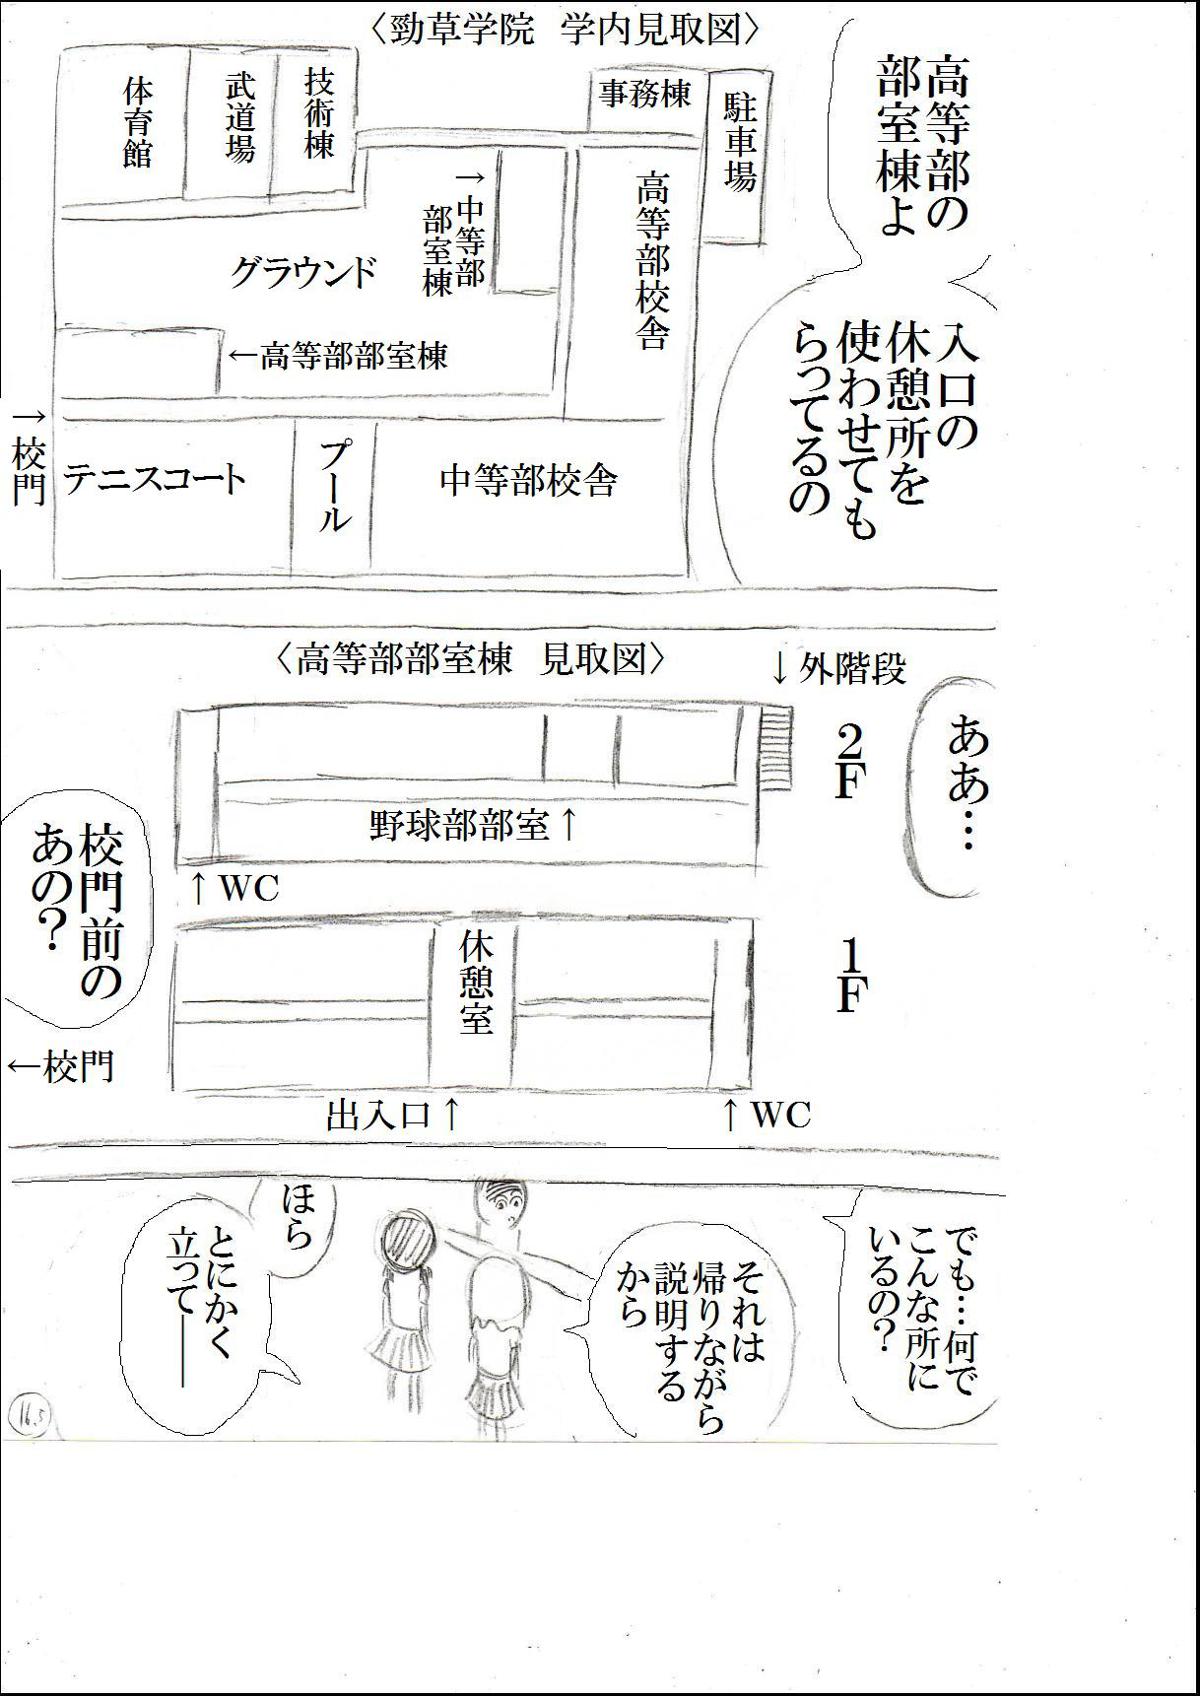 〈勁草学院　学内見取図〉
高等部の
部室棟よ
入口の
休憩所を
使わせても
らってるの
駐車場
事務棟
技術棟
武道場
体育館
高等部校舎
→中等部
部室棟
グラウンド
←高等部部室棟
→校門
テニスコート
プール
中等部校舎
〈高等部部室棟　見取図〉
↓外階段
ああ…
2F
野球部部室↑
↑WC
校門前の
あの？
1F
休憩室
←校門
出入口↑
↑WC
でも…何で
こんな所に
いるの？
それは
帰りながら
説明する
から
ほら
とにかく
立って――
16.5